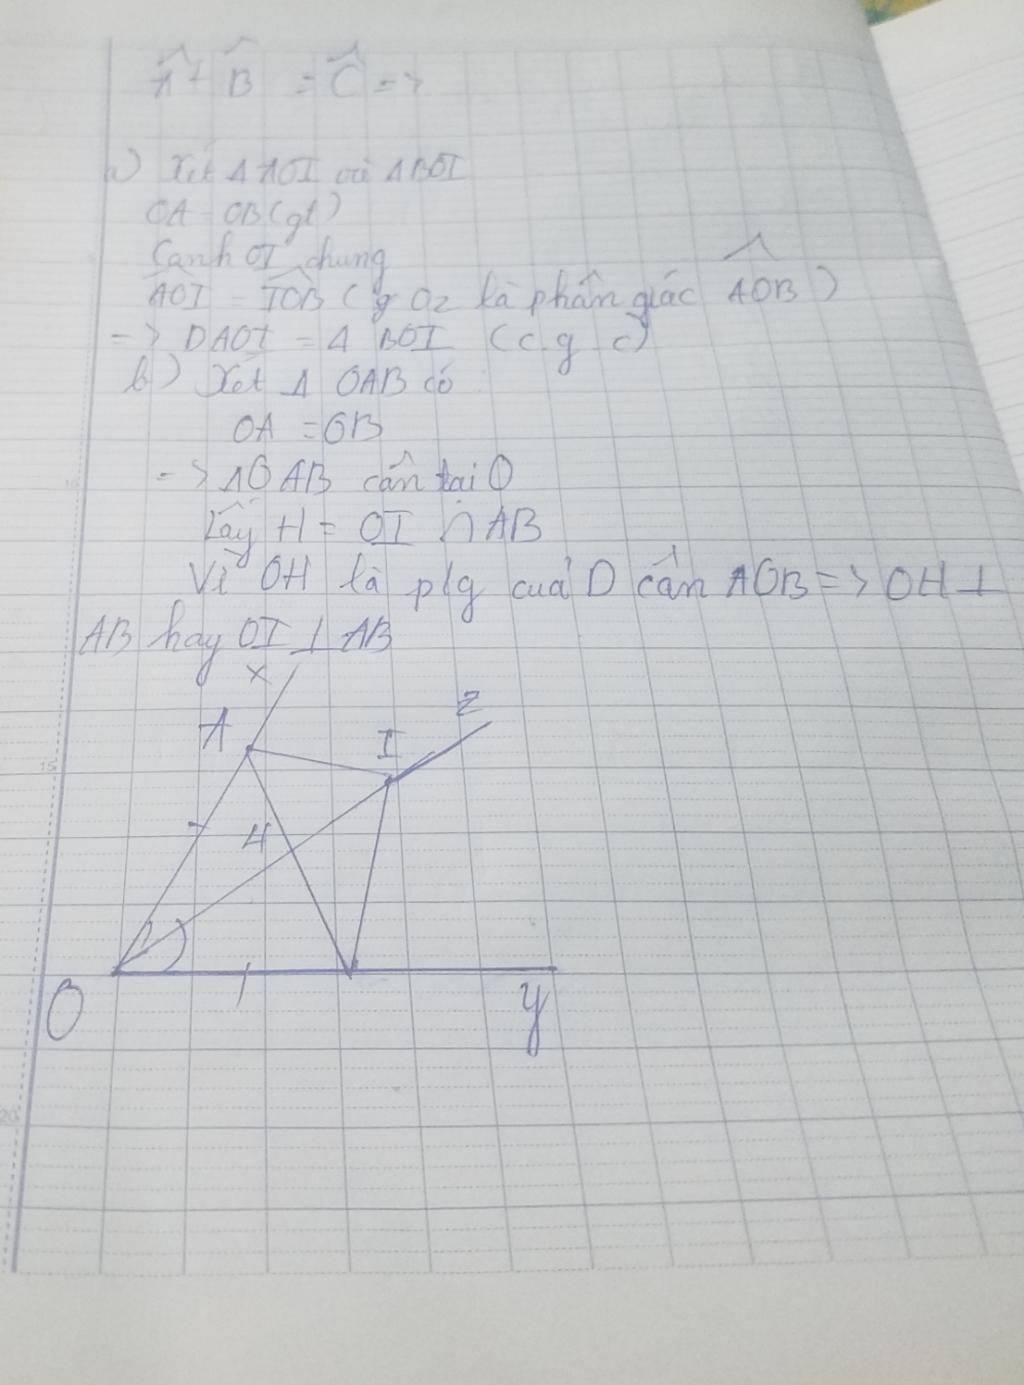 Â + B̂ = Ĉ =>
a) Xét Δ AOI và Δ BOI
OA = OB (gt)
Cạnh OI chung
AOI = IOB ( Oz là phân giác AOB )
=> DAOI = Δ BOI (c.g.c)
b) Xét Δ OAB có
OA = OB
=> ΔOAB cân tại O
Lấy H = OI ∩ AB
Vì OH là p/g của D cân AOB => OH ⊥
AB hay OI ⊥ AB
x
A
I
z
H
O
y
15
20